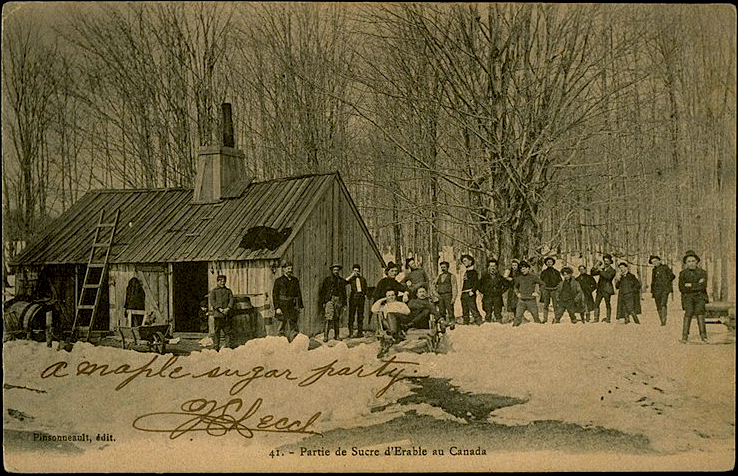 a maple sugar party.
Pinsonneault, édit.
41. - Partie de Sucre d'Erable au Canada